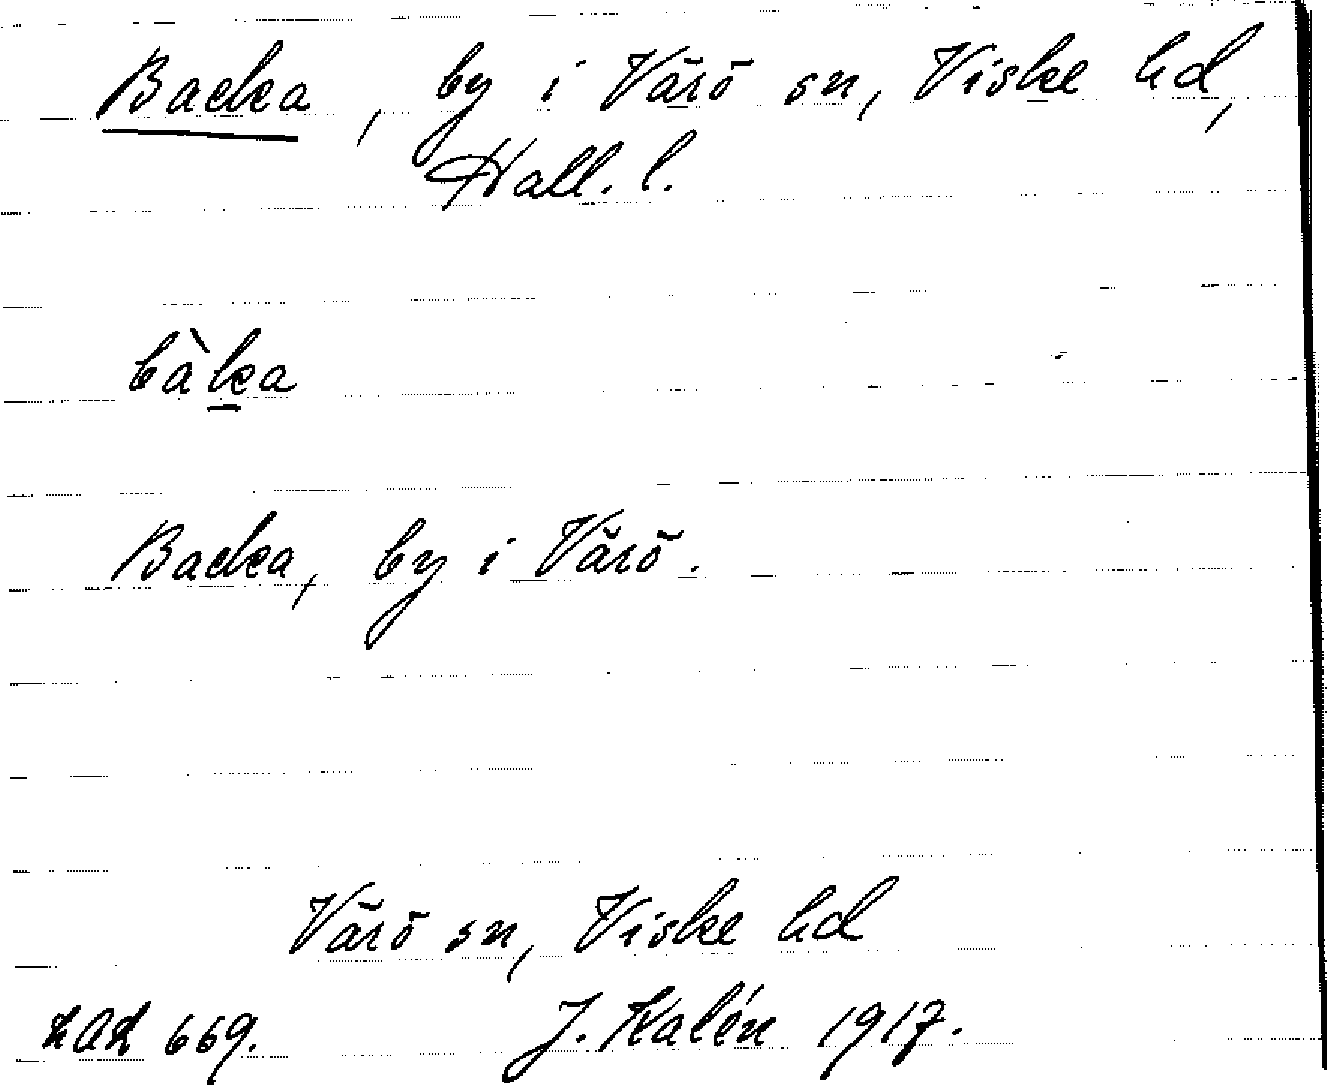 Backa, by i Värö sn, Viske hd,
Hall. l.
bàka
Backa, by i Värö.
Värö sn, Viske hd
LAL 669. J. Kalén 1917.